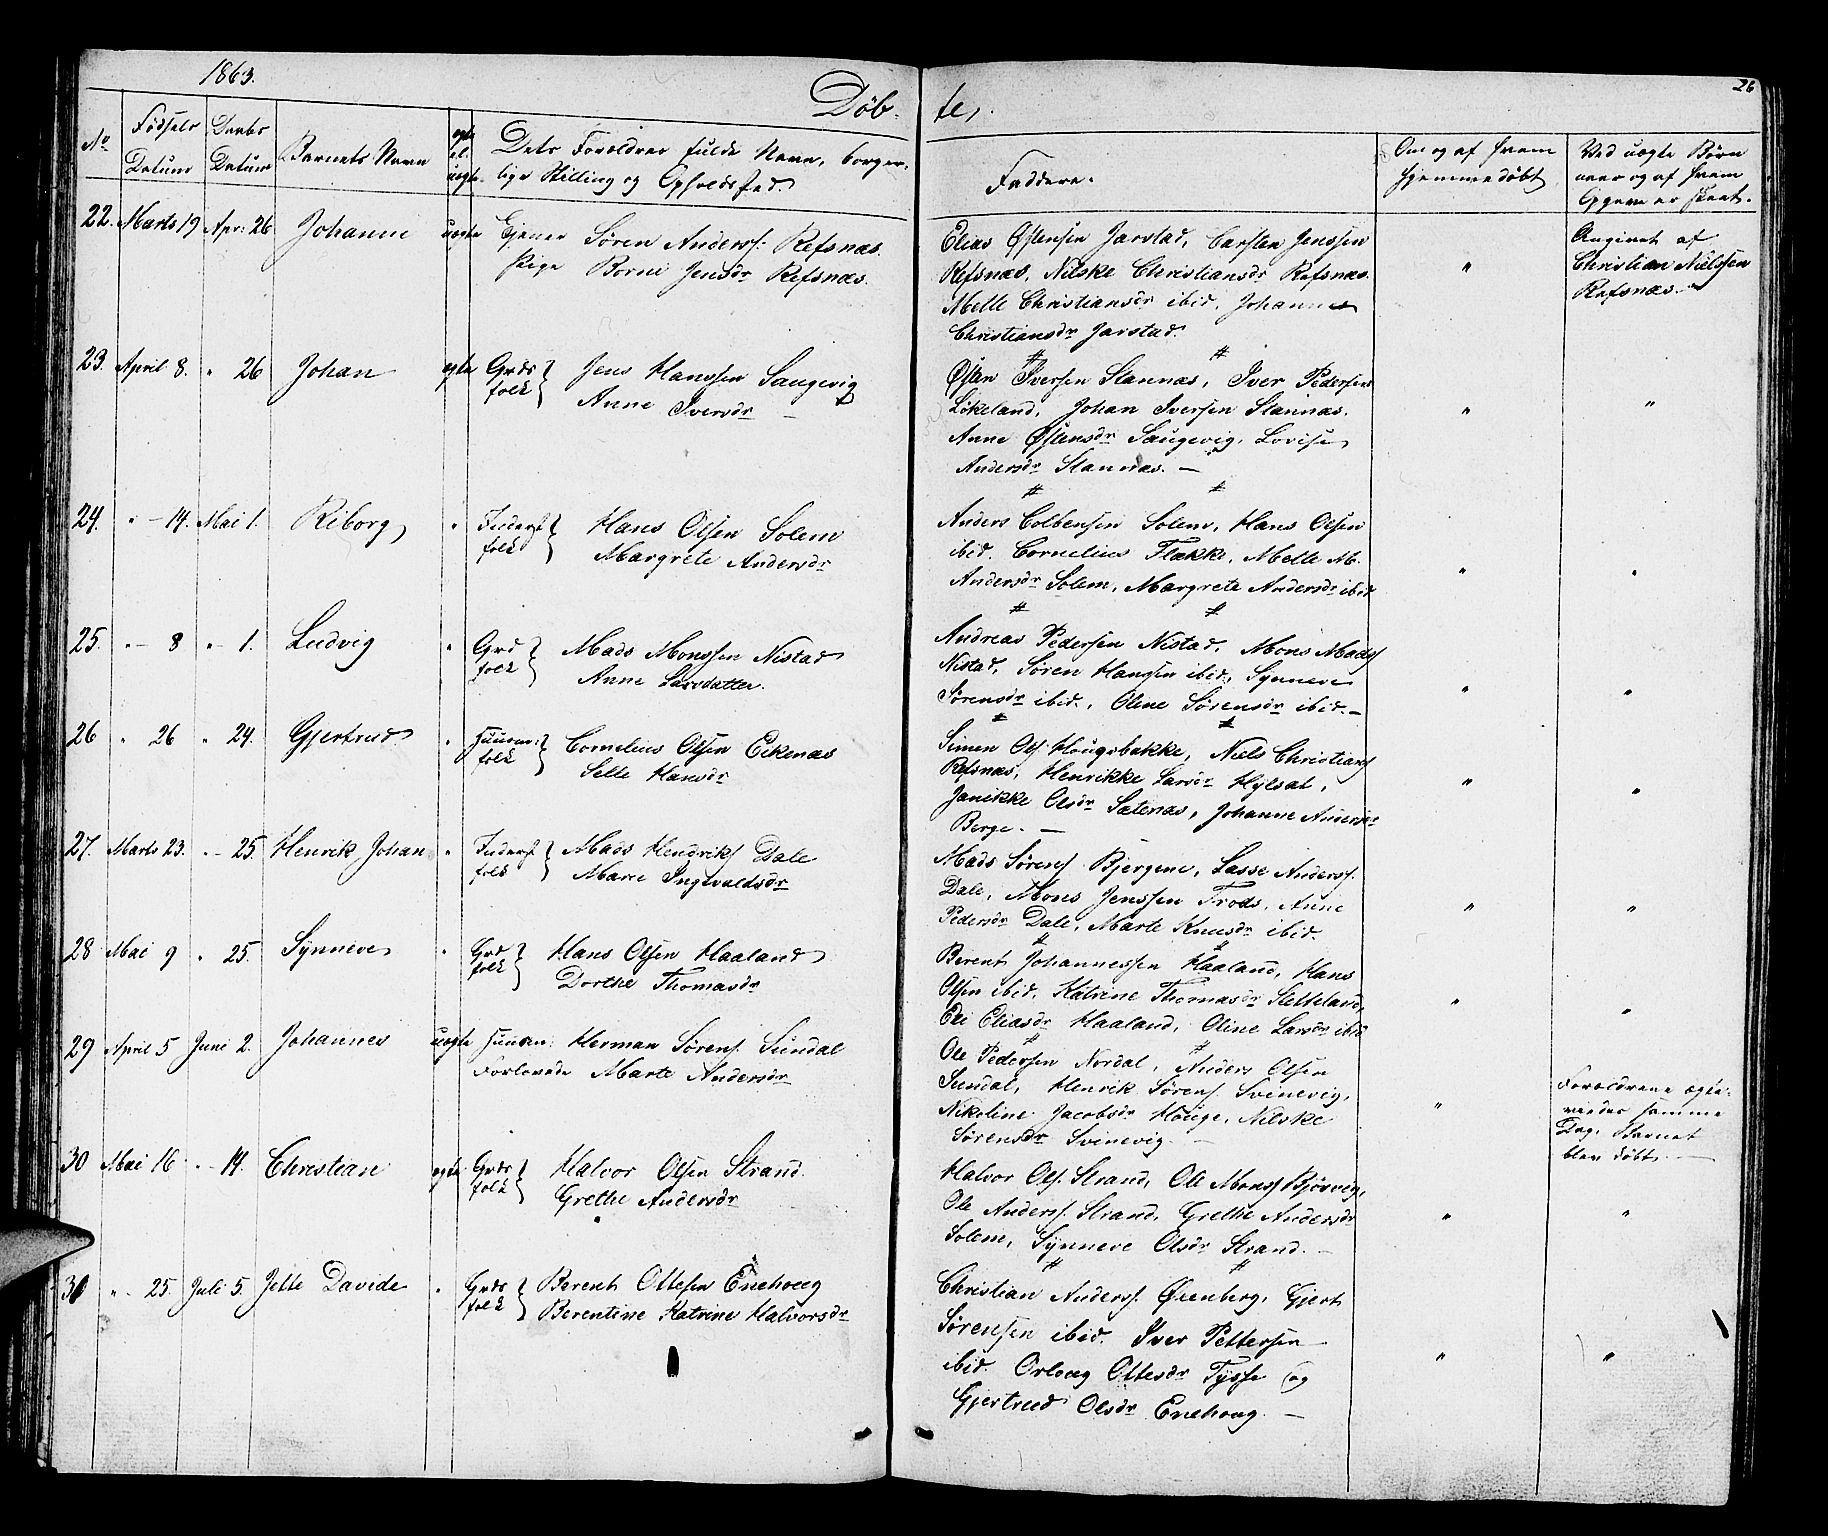 1863.
Døb-
te,
26
No
Fødsels
Datum
Daabs
Datum
Barnets Navn
ægte
el.
uægte.
Dets Forældres fulde Navn, borger-
lige Stilling og Opholdssted.
Faddere.
Om og af hvem
hjemmedøbt
Ved uægte Børn
naar og af hvem
Opgave er skeet.
22. Marts 19 Apr: 26 Johanne uægte Søren Anderss: Refsnæs.
Pige Borni Jensdr Refsnæs.
Elias Østensen Jarstad, Carsten Jenssen
Refsnæs, Nilske Christiansdr Refsnæs.
Melle Christiansdr ibid, Johanne
Christiansdr Jarstad.
"
Angivet af
Christian Nielssen
Refsnæs.-
23. April 8. " 26 Johan ægte Grds
folk } Jens Hanssen Saugevig
Anne Iversdr -
Østen Iversen Stannæs, Iver Pedersen
Løkeland, Johan Iversen Stannæs.
Anne Østensdr Saugevig, Lovise
Andersdr Stannæs. -
" "
24. " - 14. Mai 1. Riborg " Inderst
folk } Hans Olsen Solem
Margrete Andersdr
Anders Colbensen Solem, Hans Olsen
ibid. Cornelius Flække, Melle M.
Andersdr Solem, Margrete Andersdr ibid
" "
25. " - 8 " - 1. Ludvig " Grd
folk } Mads Monssen Nistad
Anne Larsdatter.
Andreas Pedersen Nistad, Mons Madss
Nistad, Søren Hanssen ibid, Synneve
Sørensdr ibid., Oline Sørensdr ibid.-
" "
26 " 26 " 24. Gjertrud " Huusm:
folk } Cornelius Olsen Eikenæs
Selle Hansdr
Simen Ols: Hougsbakke, Niels Christians
Refsnæs, Henrikke Larsdr Hylsæt,
Janikke Olsdr Sætenæs, Johanne Andersdr
Berge. -
" "
27. Marts 23. " - 25. Henrik Johan " Inderst
folk } Mads Hendriks Dale
Marie Ingvaldsdr
Mads Sørens. Bjergene, Lasse Anderss.
Dale, Mons Jenssen Trods, Anne
Pedersdr Dale, Marte Knusdr ibid.
" "
28 Mai 9 " 25. Synneve " Grd
folk } Hans Olsen Haaland
Dorthe Thomasdr
Berent Johannessen Haaland, Hans
Olsen ibid, Katrine Thomasdr Sletteland,
Eli Eliasdr Haaland, Oline Larsdr ibid
" "
29 April 5 Juni 2. Johannes uægte Huusm: Herman Sørens. Sundal
Forlovede Marte Andersdr
Ole Pedersen Nordal, Anders Olsen
Sundal, Henrik Sørens. Svinevig,
Nikoline Jacobsdr Houge, Nilske
Sørensdr Svinevig. -
"
Forældrene ægte-
viedes samme
Dag, Barnet
blev døbt. -
30 Mai 16 " - 14. Christian ægte Grds
folk } Halvor Olsen Strand.
Grethe Andersdr
Halvor Ols. Strand, Ole Monss Bjørvig,
Ole Anderss. Strand, Grethe Andersdr
Solem, Synneve Olsdr Strand. -
" "
31 " - 25. Juli 5. Jette Davide " Grds
folk } Berent Ottesen Enehoug
Berentine Katrine Halvorsdr
Christian Anderss. Øxenberg, Gjert
Sørensen ibid. Iver Pettersen
ibid. Orloug Ottesdr Tysse og
Gjertrud Olsdr Enehoug. -
" "